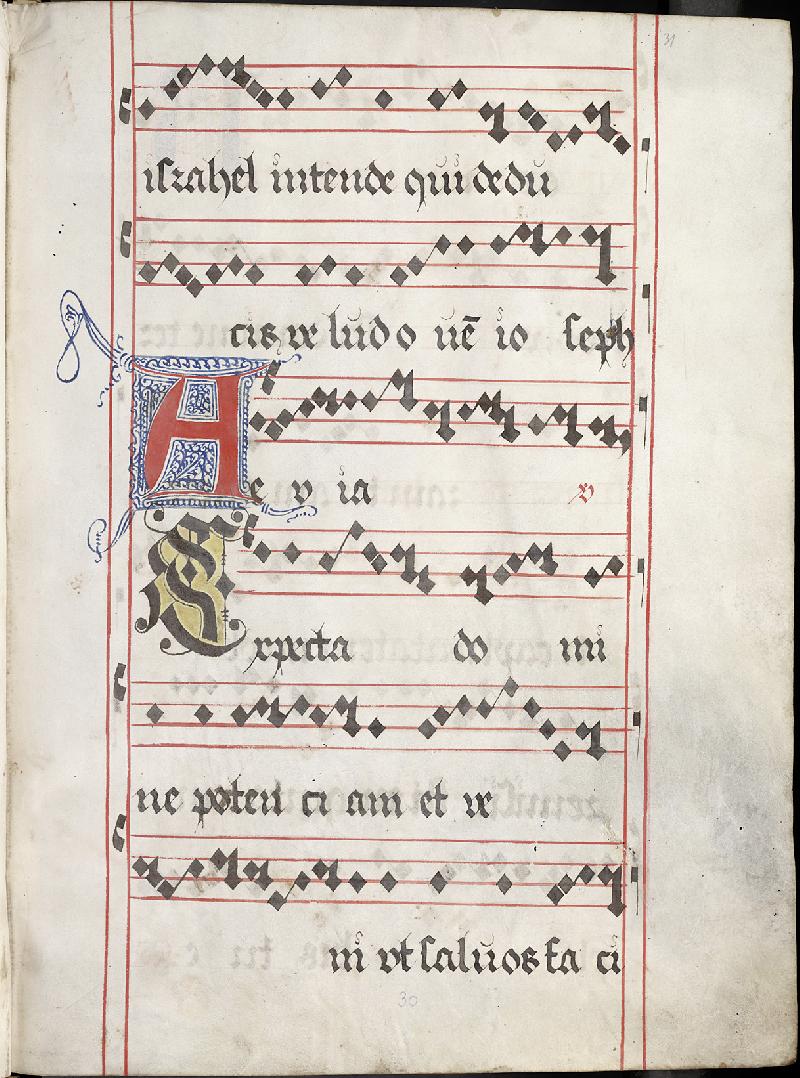 31
israhel intende qui dedu
cis ve lud o uē io seph
A e v ia v
Expecta do mi
ne poten ci am et ve
ni vt saluos fa ci
30